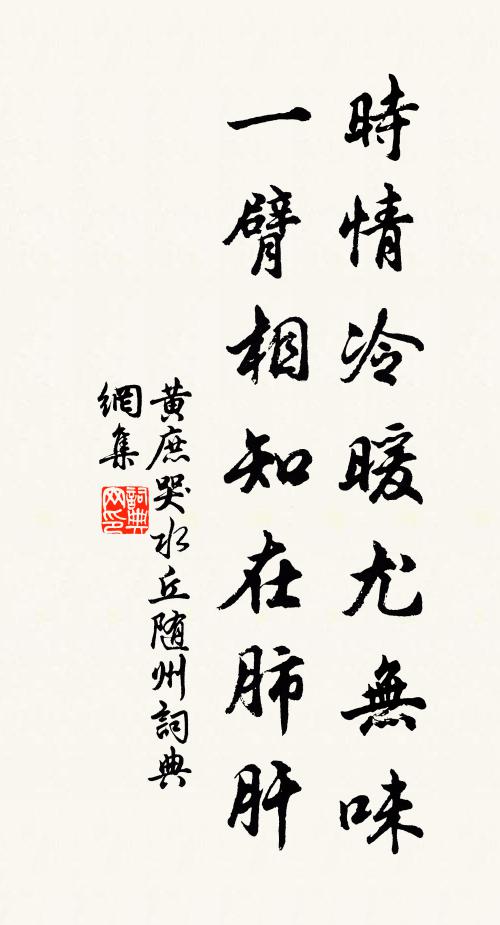 時情冷暖尤無味
一臂相知在肺肝
黄庶哭水丘随州詞典
網集
詞典
网印